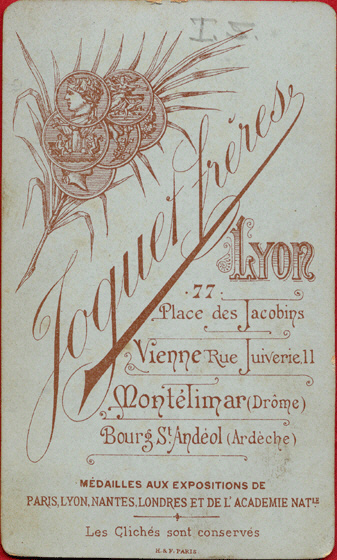 Joguet frères,
Lyon
77
Place des Jacobins
Vienne Rue Juiverie, 11
Montélimar (Drôme)
Bourg St. Andéol (Ardèche)
MÉDAILLES AUX EXPOSITIONS DE
PARIS, LYON, NANTES, LONDRES ET DE L'ACADEMIE NATLE
Les Clichés sont conservés
H. & F. PARIS